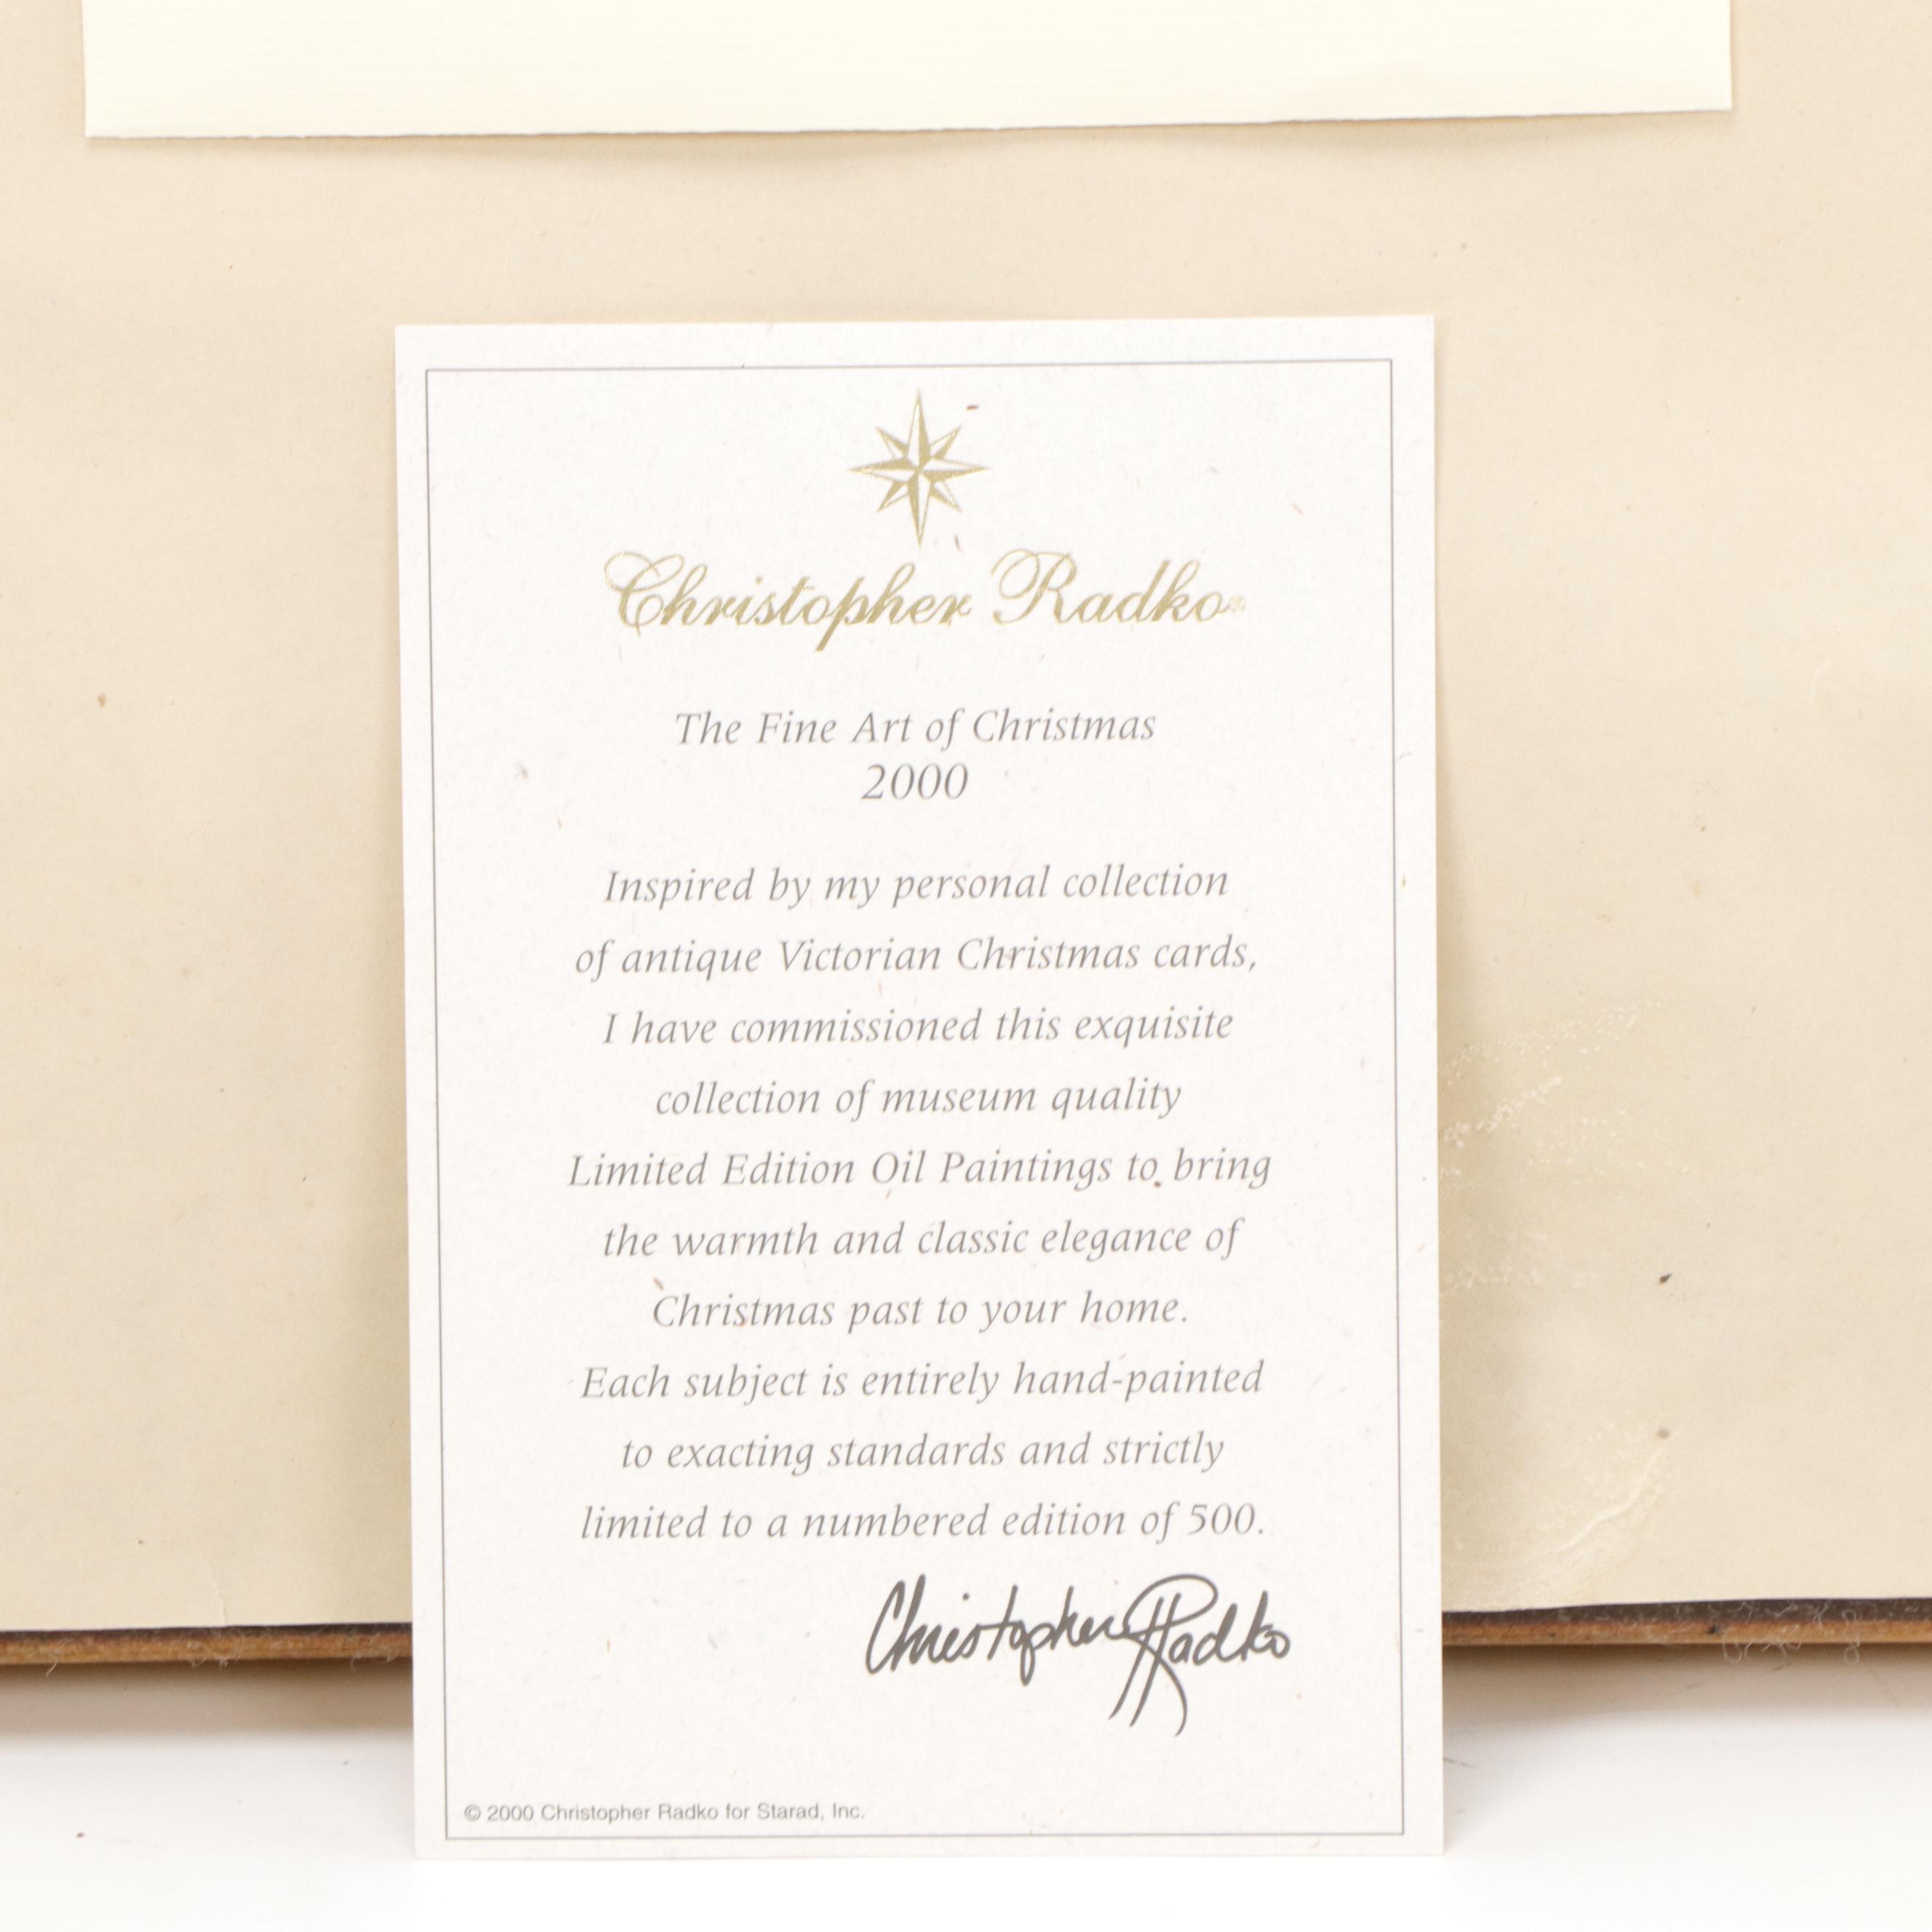 Christopher Radko®
The Fine Art of Christmas
2000
Inspired by my personal collection
of antique Victorian Christmas cards,
I have commissioned this exquisite
collection of museum quality
Limited Edition Oil Paintings to bring
the warmth and classic elegance of
Christmas past to your home.
Each subject is entirely hand-painted
to exacting standards and strictly
limited to a numbered edition of 500.
Christopher Radko
© 2000 Christopher Radko for Starad, Inc.